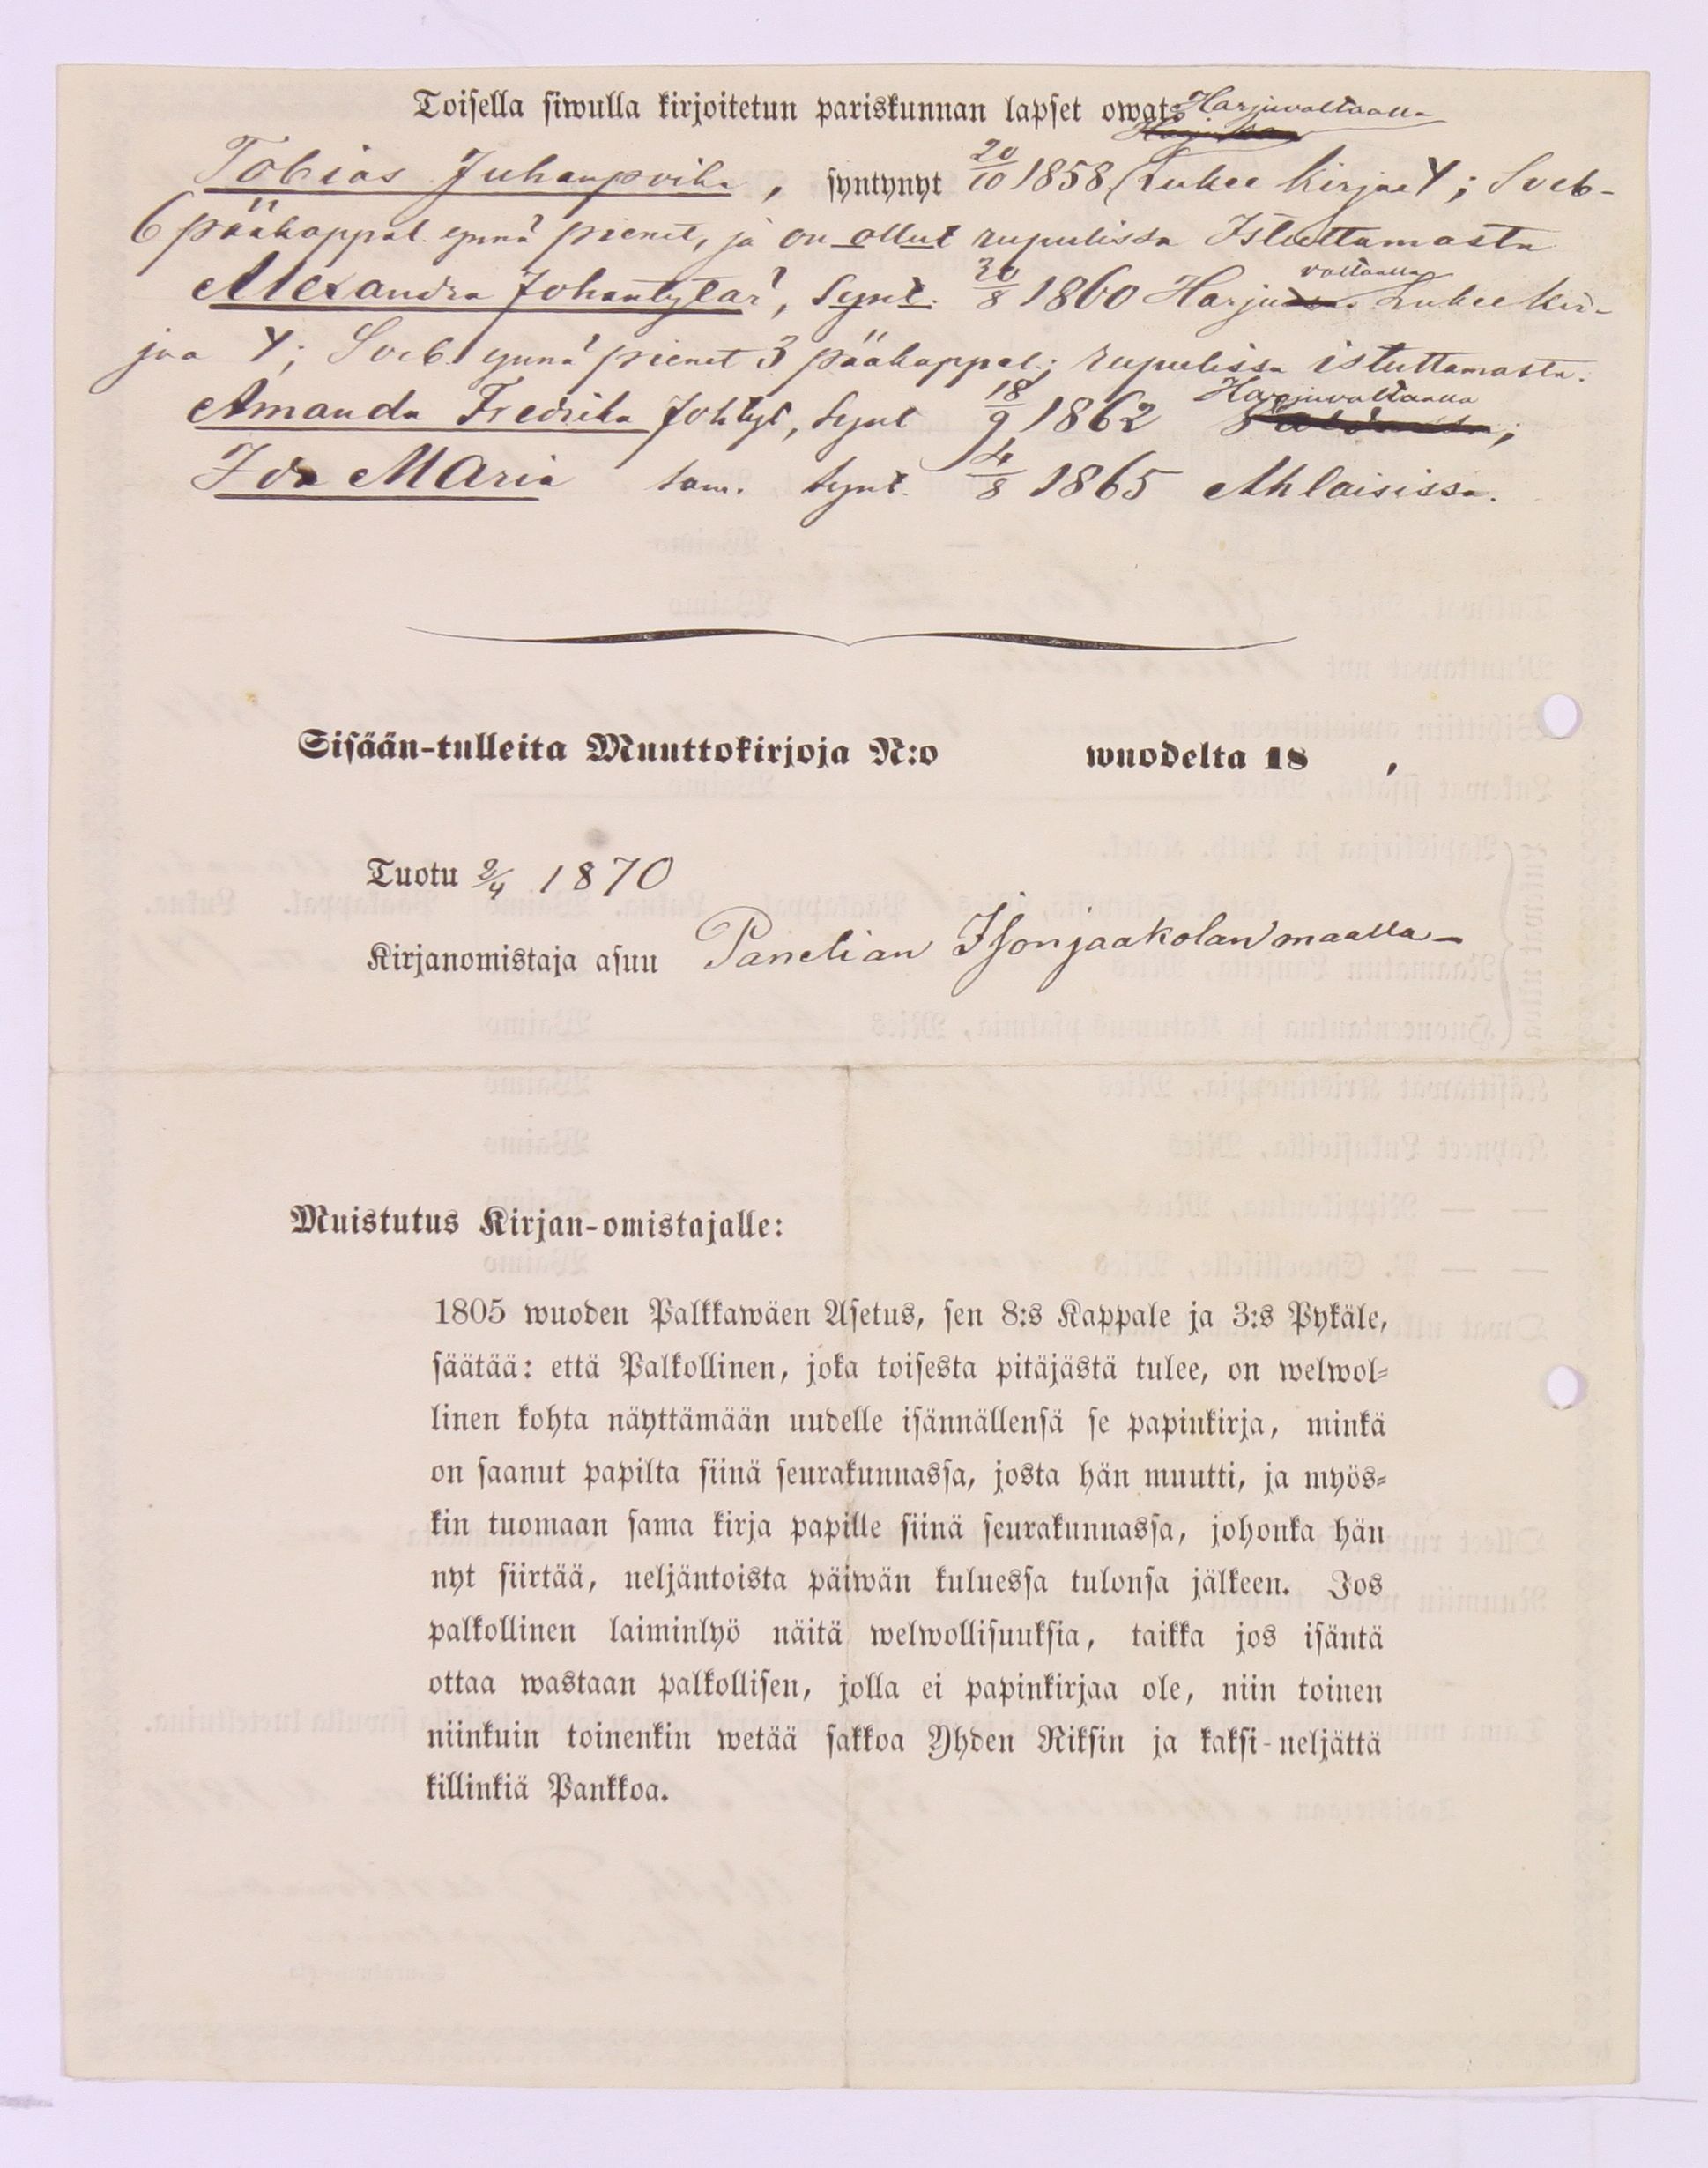 Toisella siwulla kirjoitetun pariskunnan lapset owat: Harjuvaltaalla
Tobias Juhanpoika, syntynyt 20/10 1858 (Lukee kirjaa Y; Sveb-
6 pääkappal. ynnä pienet, ja on ollut rupulissa Istuttamasta
Alexandra Johantytär, Synt. 30/8 1860 Harju valtaalla Lukee kir-
jaa Y; Sveb. ynnä pienet 3 pääkappal.; rupulissa istuttamasta.
Amanda Fredrika Johtyt, Synt 18/9 1862 Harjuvaltaalla ;
Ida Maria sam. Synt. 4/8 1865 Ahlaisissa.
Sisään-tulleita Muuttokirjoja N:o wuodelta 18 ,
Tuotu 2/4 1870
Kirjanomistaja asuu Panelian Isonjaakolan maalla-
Muistutus Kirjan-omistajalle:
1805 wuoden Palkkawäen Asetus, sen 8:s Kappale ja 3:s Pykäle,
säätää: että Palkollinen, joka toisesta pitäjästä tulee, on welwol-
linen kohta näyttämään uudelle isännällensä se papinkirja, minkä
on saanut papilta siinä seurakunnassa, josta hän muutti, ja myös-
kin tuomaan sama kirja papille siinä seurakunnassa, johonka hän
nyt siirtää, neljäntoista päiwän kuluessa tulonsa jälkeen. Jos
palkollinen laiminlyö näitä welwollisuuksia, taikka jos isäntä
ottaa wastaan palkollisen, jolla ei papinkirjaa ole, niin toinen
niinkuin toinenkin wetää sakkoa Yhden Riksin ja kaksi-neljättä
killinkiä Pankkoa.